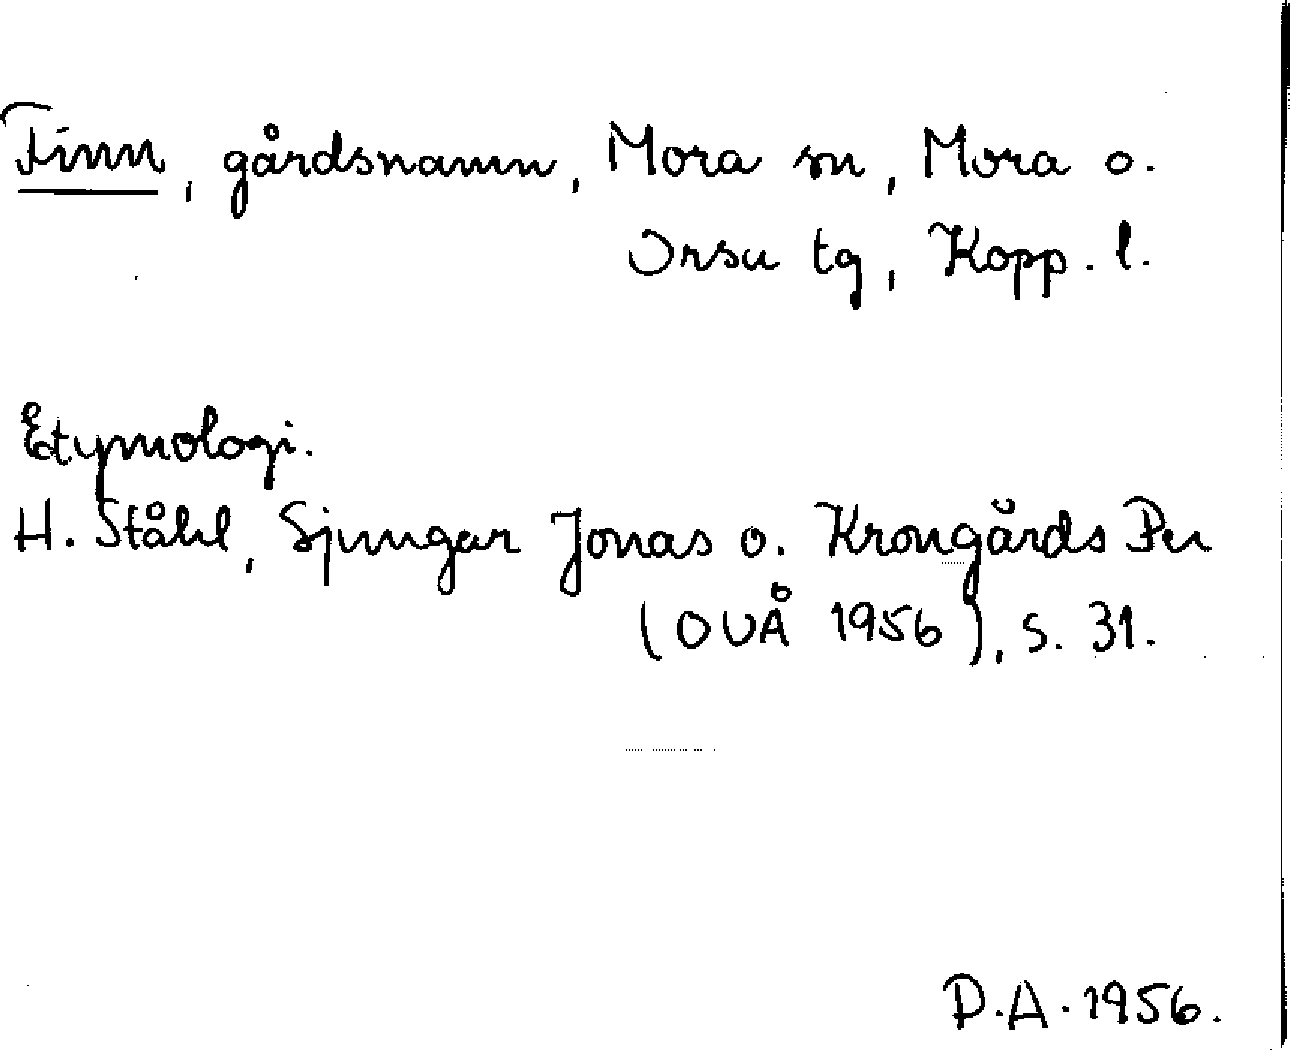 Finn, gårdsnamn, Mora sn, Mora o.
Orsa tg, Kopp. l.
Etymologi.
H. Ståhl, Sjungar Jonas o. Krongårds Per
(OUÅ 1956), s. 31.
P.A. 1956.